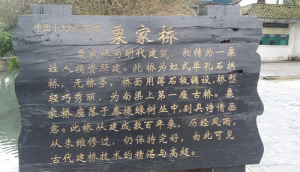 中国十大水乡古镇
栗家桥
栗家桥为明代建筑，相传为一栗
姓人捐资所建。此桥为虹式单孔石拱
桥，无桥亭，桥面用薄石板铺设，桥型
轻巧秀丽，为南渠上第一座古桥。栗
家桥桥座落于泰堤绿树丛中，别具诗情画
意。此桥从建成数百年来，历经风雨，
从未维修过，仍保持完好，由此可见
古代建桥技术的精湛与高超。